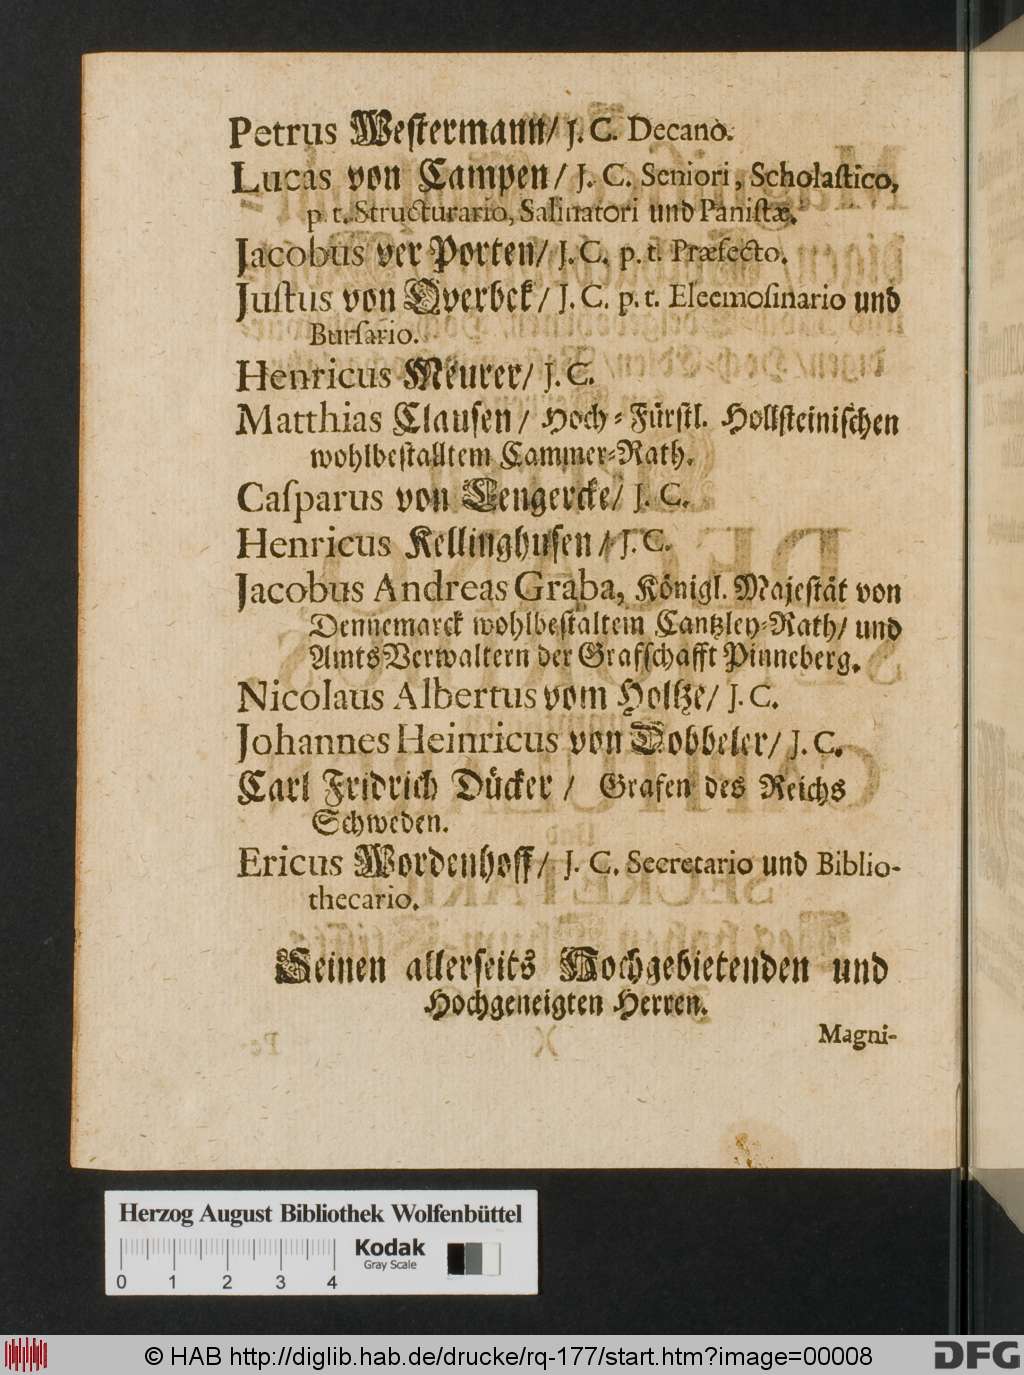 Petrus Westermann/ J. C. Decanò.
Lucas von Campen/ J. C. Seniori, Scholaſtico,
p. t. Structurario, Salinatori und Paniſtæ.
Jacobus ver Porten/ J. C. p. t. Præfecto.
Juſtus von Overbek/ J. C. p. t. Eleemoſinario und
Burſario.
Henricus Meurer/ J. C.
Matthias Clauſen/ Hoch-Fürſtl. Hollſteiniſchen
wohlbeſtalltem Cammer-Rath.
Caſparus von Lengercke/ J. C.
Henricus Kellinghuſen/ J. C.
Jacobus Andreas Graba, Königl. Majeſtät von
Dennemarck wohlbeſtaltem Cantzley-Rath/ und
Amts Verwaltern der Grafſchafft Pinneberg.
Nicolaus Albertus vom Holtze/ J. C.
Johannes Heinricus von Dobbeler/ J. C.
Carl Fridrich Dücker/ Grafen des Reichs
Schweden.
Ericus Wordenhoff/ J. C. Secretario und Biblio-
thecario.
Seinen allerſeits Hochgebietenden und
Hochgeneigten Herren.
Magni-
Herzog August Bibliothek Wolfenbüttel
Kodak
Gray Scale
0 1 2 3 4
© HAB http://diglib.hab.de/drucke/rq-177/start.htm?image=00008
DFG